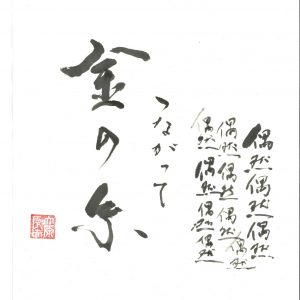 偶然偶然偶然
偶然偶然偶然偶然
偶然偶然偶然偶然
つながって
金の糸